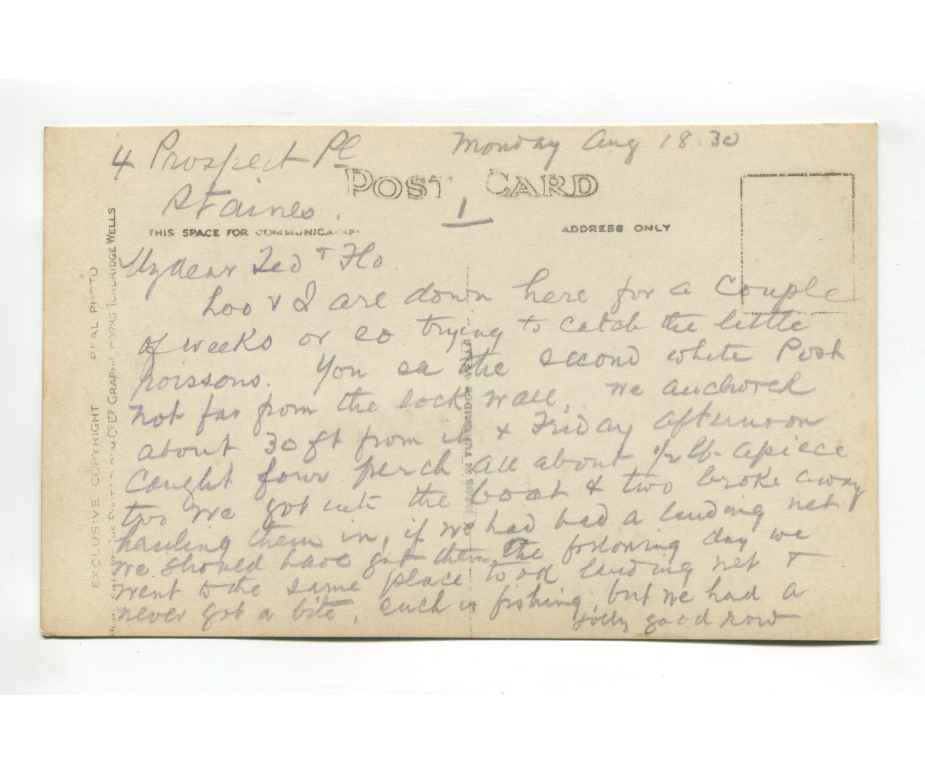 4 Prospect Pl
Staines.
Monday Aug 18.30
POST CARD
1
THIS SPACE FOR COMMUNICATION
ADDRESS ONLY
My dear Ted & Flo
Loo & I are down here for a Couple
of weeks or so trying to catch the little
poissons. You see the second white Post
not far from the lock wall, we anchored
about 30 ft from it & Friday afternoon
caught four perch all about 1/2 lb apiece
two we got into the boat & two broke away
hauling them in, if we had had a landing net
we should have got them, the following day we
went to the same place took landing net &
never got a bite, such is fishing, but we had a
jolly good row
EXCLUSIVE COPYRIGHT REAL PHOTO
TUNBRIDGE WELLS